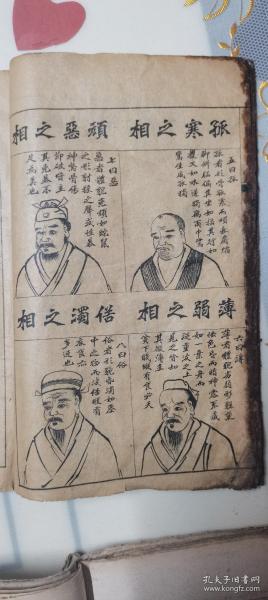 孤寒之相
五曰孤
孤者形骨孤寒而項長肩縮
脚斜腦偏其坐如搖其行如
攫又如水邊獨鶴雨中鷺
鷥生成孤獨
頑惡之相
七曰惡
惡者體貌兇頑如蛇鼠
之形豺狼之聲或性暴
神驚骨傷
節破皆主
其兇暴不
足為美也
薄弱之相
六曰薄
薄者體貌劣弱形輕氣
怯色昏而暗神露不藏
如一葉之舟而
泛重波之上
見之皆知
其微薄主
貧下賤縱有食必夭
俗濁之相
八曰俗
俗者形貌昏濁如塵
中之物而淺俗縱有
衣食亦
多迍也
孔夫子旧书网